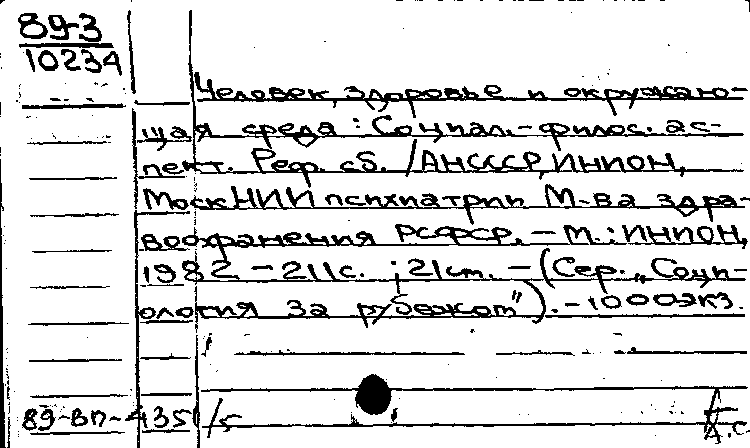 89-3
10234
Человек, здоровье и окружаю-
щая среда: Социал.-филос. ас-
пект. Реф. сб. /АН СССР, ИНИОН,
Моск НИИ психиатрии М-ва здра-
воохранения РСФСР. - М.: ИНИОН,
1982 - 211с. ; 21см. - (Сер. "Соци-
ология за рубежом"). - 1000экз.
89-ВП-4351/5